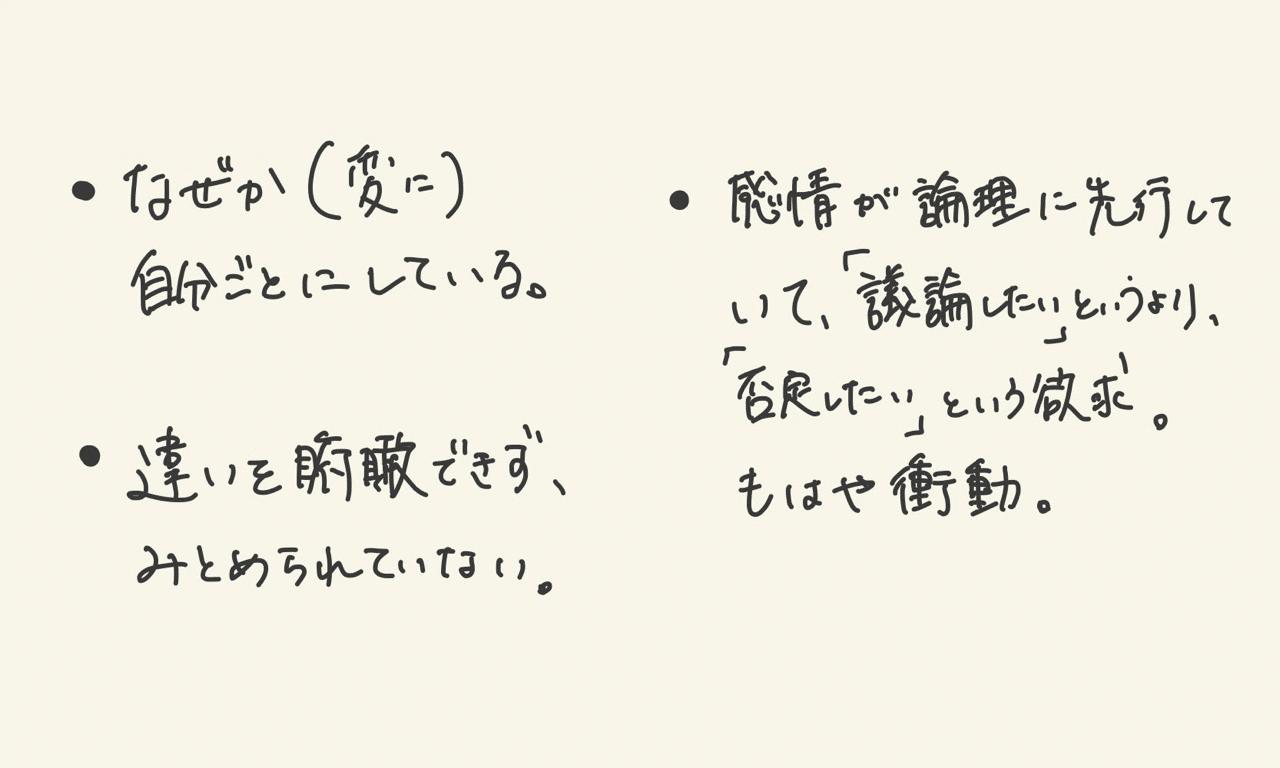 • なぜか(変に)
自分ごとにしている。
• 違いを俯瞰できず、
みとめられていない。
• 感情が論理に先行して
いて、「議論したい」というより、
「否定したい」という欲求。
もはや衝動。